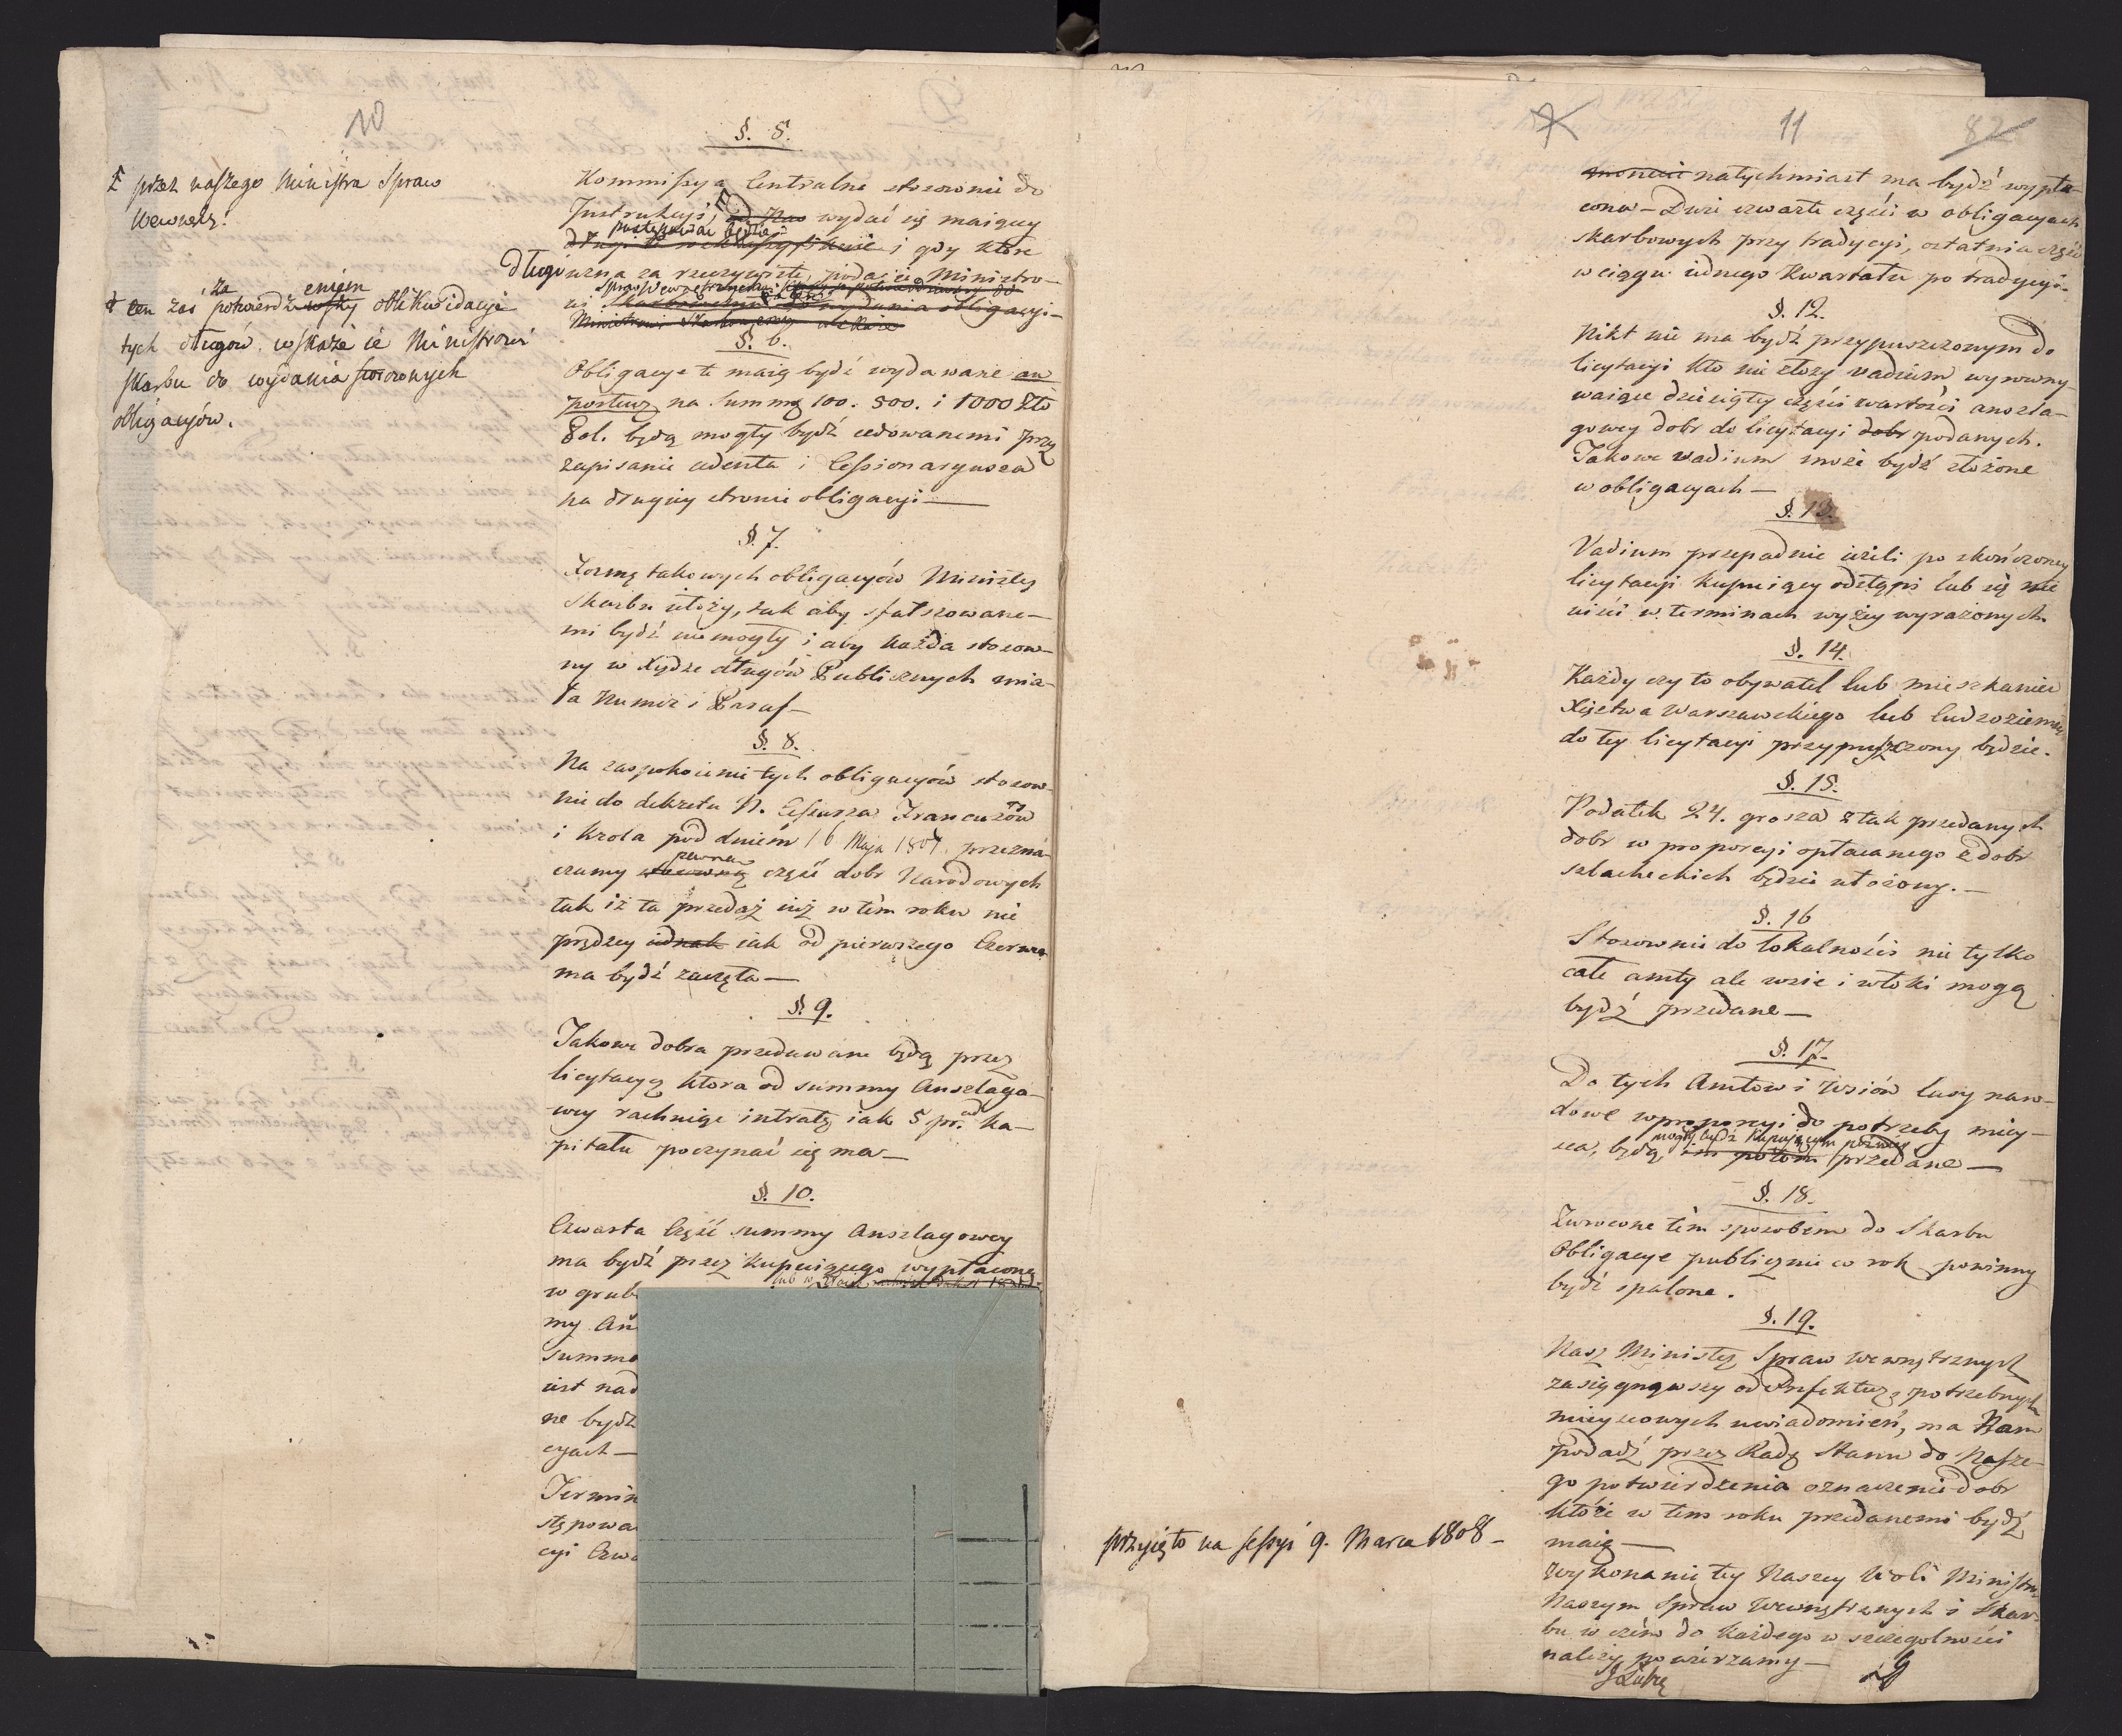 10
§. 5.
Ł przez naszego Ministra Spraw
Wewnętr:
Kommissya Centralna stosownie do
Instrukcyi, wydać się maiącey
postępować będzie
i gdy które
długi uzna za rzeczywiste, poda ie Ministro-
wi Spraw Wewnętrznych
wydania obligacyi-
Ministrowi Skarbu
ten zaś za potwierdzeniem oblikwidacyi
tych długów wskaże ie Ministrowi
Skarbu do wydania stosownych
obligacyów.
§. 6.
Obligacye te maią bydź wydawane au
porteur na Summę 100. 500. i 1000 Zło
Pol. będą mogły bydź cedowanemi przy
zapisanie cedenta i Cessionaryusza
na drugiey stronie obligacyi —
§. 7.
Formę takowych obligacyów Minister
Skarbu ułoży, tak aby sfałszowane-
mi bydź niemogły i aby każda stosow-
ny w Xiędze długów Publicznych mia-
ła Numer i Paraf —
§. 8.
Na zaspokoienie tych obligacyów stosow-
nie do dekretu N. Cesarza Francuzów
i Krola pod dniem 16 Maja 1807. przezna-
czamy pewną część dobr Narodowych
tak iż ta przedaż iuż w tém roku nie
prędzey iednak iak od pierwszego Czerwca
ma bydź zaczęta —
§. 9.
Takowe dobra przedawane będą przez
licytacyą ktora od summy Anszlago-
wey rachuiąc intratę iak 5 pr. od Ka-
pitału poczynać się ma —
§. 10.
Czwarta Część summy Anszlagowey
ma bydź przez kupuiącego wypłacona
w grub
my An
summo
iest nad
ne bydź
cyach —
Termin
stępowa
cyi Czwa
7
11
82
natychmiast ma bydź wypła-
cona — Dwie czwarte części w obligacyach
skarbowych przy tradycyi, ostatnia część
w ciągu iednego Kwartału po tradycyi.
§. 12.
Nikt nie ma bydź przypuszczonym do
licytacyi kto nie złoży vadium wyrowny-
waiące dziesiątey części wartości anszla-
gowey dobr do licytacyi dobr podanych.
Takowe vadium może bydź złożone
w obligacyach —
§. 13.
Vadium przepadnie ieżeli po skończoney
licytacyi kupuiący odstąpi lub się nie
uiści w terminach wyżey wyrażonych.
§. 14.
Każdy czy to obywatel lub mieszkaniec
Xięstwa Warszawskiego lub Cudzoziemiec
do tey licytacyi przypuszczony będzie.
§. 15.
Podatek 24. grosza z tak przedanych
dobr w proporcyi opłacanego z dobr
szlacheckich będzie ułożony. —
§. 16
Stosownie do lokalności nie tylko
całe amty ale wsie i włoki mogą
bydź przedane —
§. 17.
Do tych Amtow i wsiów lasy naro-
dowe w proporcyi do potrzeby miey-
sca, będą mogły bydź kupuiącym późniey
im potom przedane —
§. 18.
Zwrocone tém sposobem do Skarbu
Obligacye publicznie co rok powinny
bydź spalone.
§. 19.
Nasz Minister Spraw Wewnętrznych
zasięgnąwszy od Prefektur potrzebnych
mieyscowych uwiadomień, ma Nam
podadź przez Radę Stanu do Nasze-
go potwierdzenia oznaczenie dobr
które w tem roku przedanemi bydź
maią —
Wykonanie tey Naszey Woli Ministrom
Naszym Spraw Wewnętrznych i Skar-
bu w czém do każdego w szczególności
należy powierzamy —
przyjęto na sessyi 9. Marca 1808 —